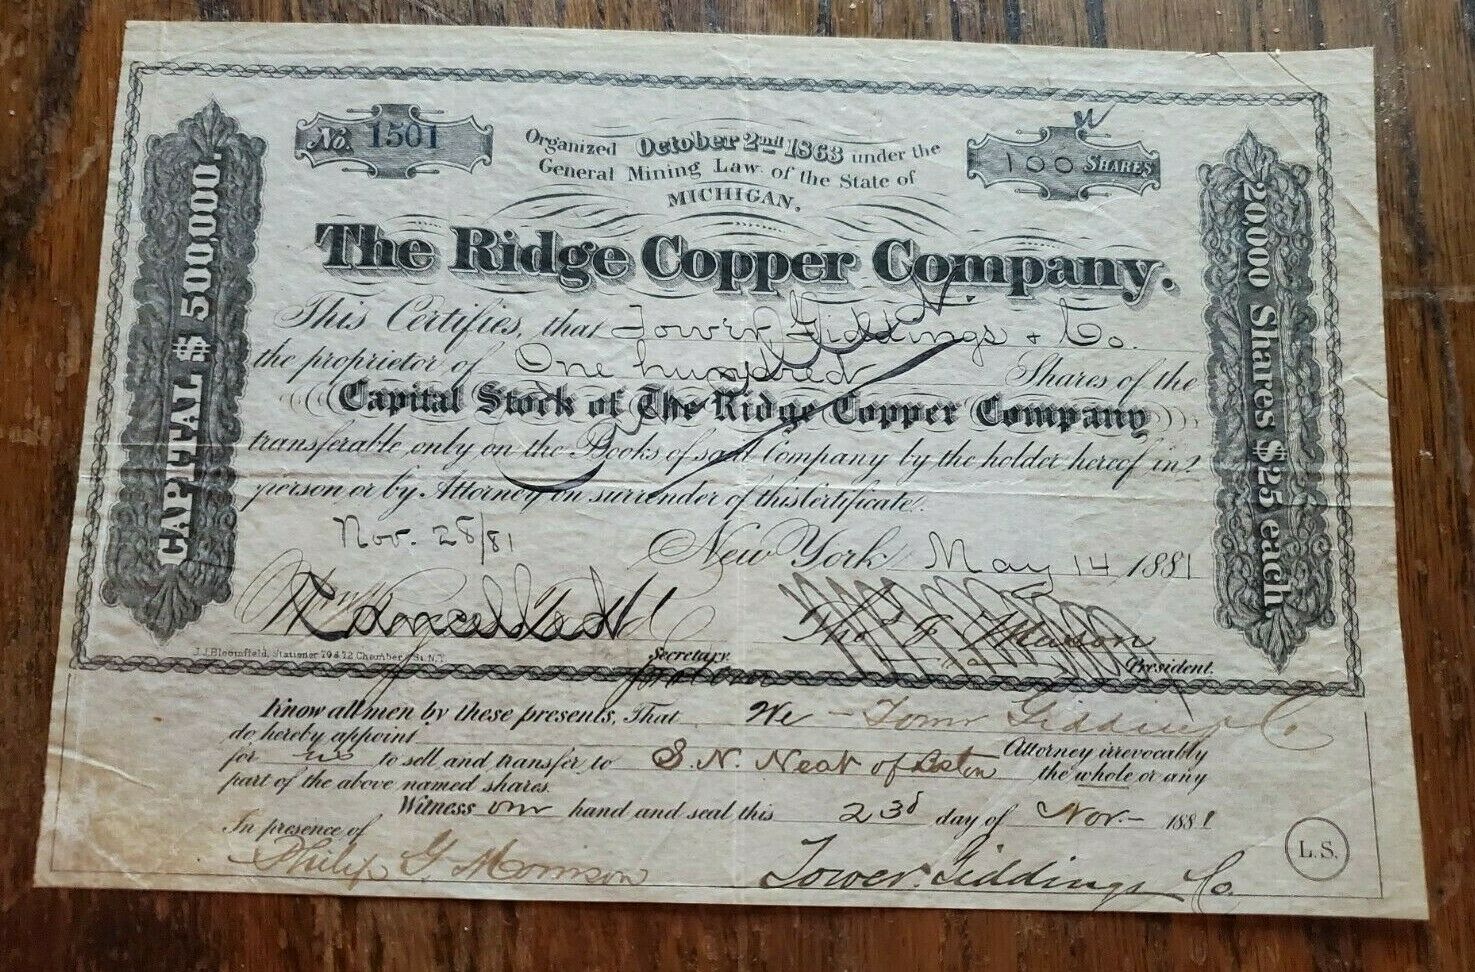 No. 1501
Organized October 2nd 1863 under the
General Mining Law of the State of
MICHIGAN.
100 SHARES
CAPITAL $ 500,000.
20,000 Shares $25 each
The Ridge Copper Company.
This Certifies, that Tower Giddings & Co.
the proprietor of One hundred Shares of the
Capital Stock of The Ridge Copper Company
transferable only on the Books of said Company by the holder hereof in
person or by Attorney on surrender of this certificate.
Nov. 28/81
New York May 14 1881
Cancelled
Secretary
President.
J.J. Bloomfield, Stationer 70 & 72 Chamber St. N.Y.
Know all men by these presents, That We - Tower Giddings & Co
do hereby appoint
Attorney irrevocably
for us to sell and transfer to S. N. Neat of Boston the whole or any
part of the above named shares.
Witness our hand and seal this 23d day of Nov. - 1881
In presence of
Philip G. Morrison
Tower Giddings & Co.
L.S.